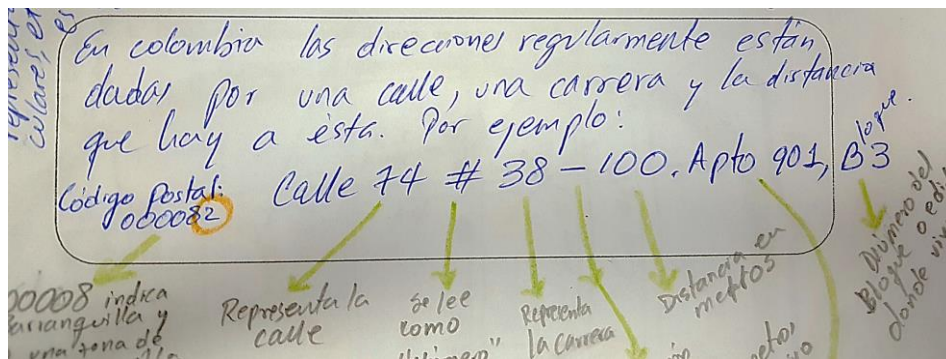 En colombia las direcciones regularmente están
dadas por una calle, una carrera y la distancia
que hay a ésta. Por ejemplo:
Código Postal:
000082
Calle 74 # 38 - 100. Apto 901, B3
loque.
00008 indica
una zona de
Representa la
calle
se lee
como
Representa
la carrera
Distancia en
metros
Número del
Bloque o
donde